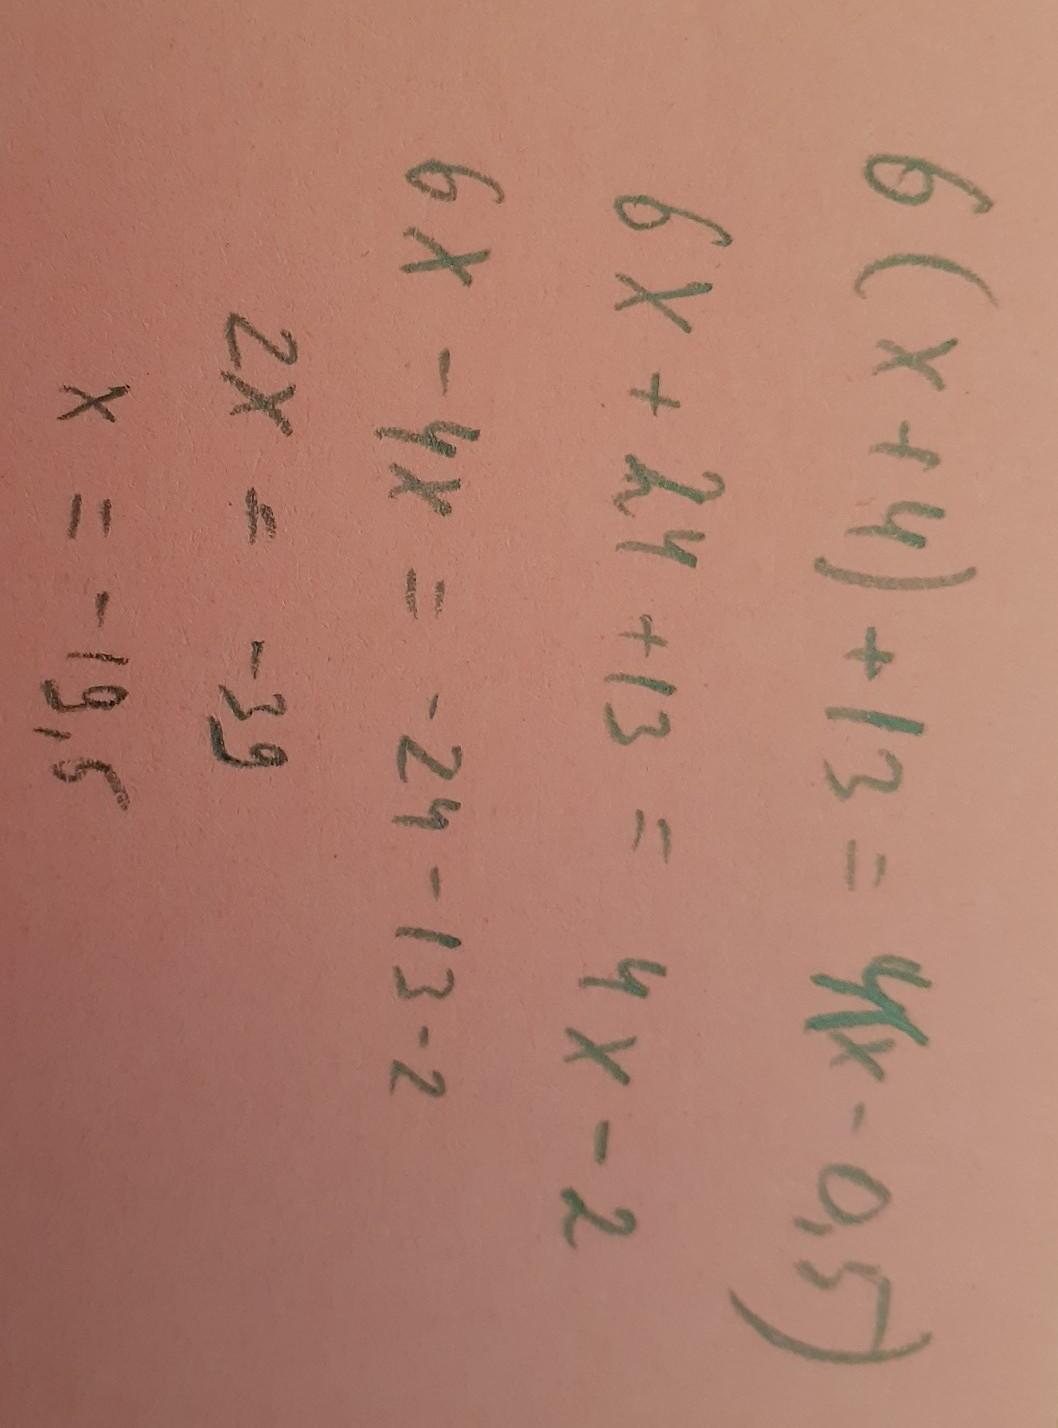 6(x+4)+13=4(x-0,5)
6x+24+13=4x-2
6x-4x=-24-13-2
2x=-39
x=-19,5